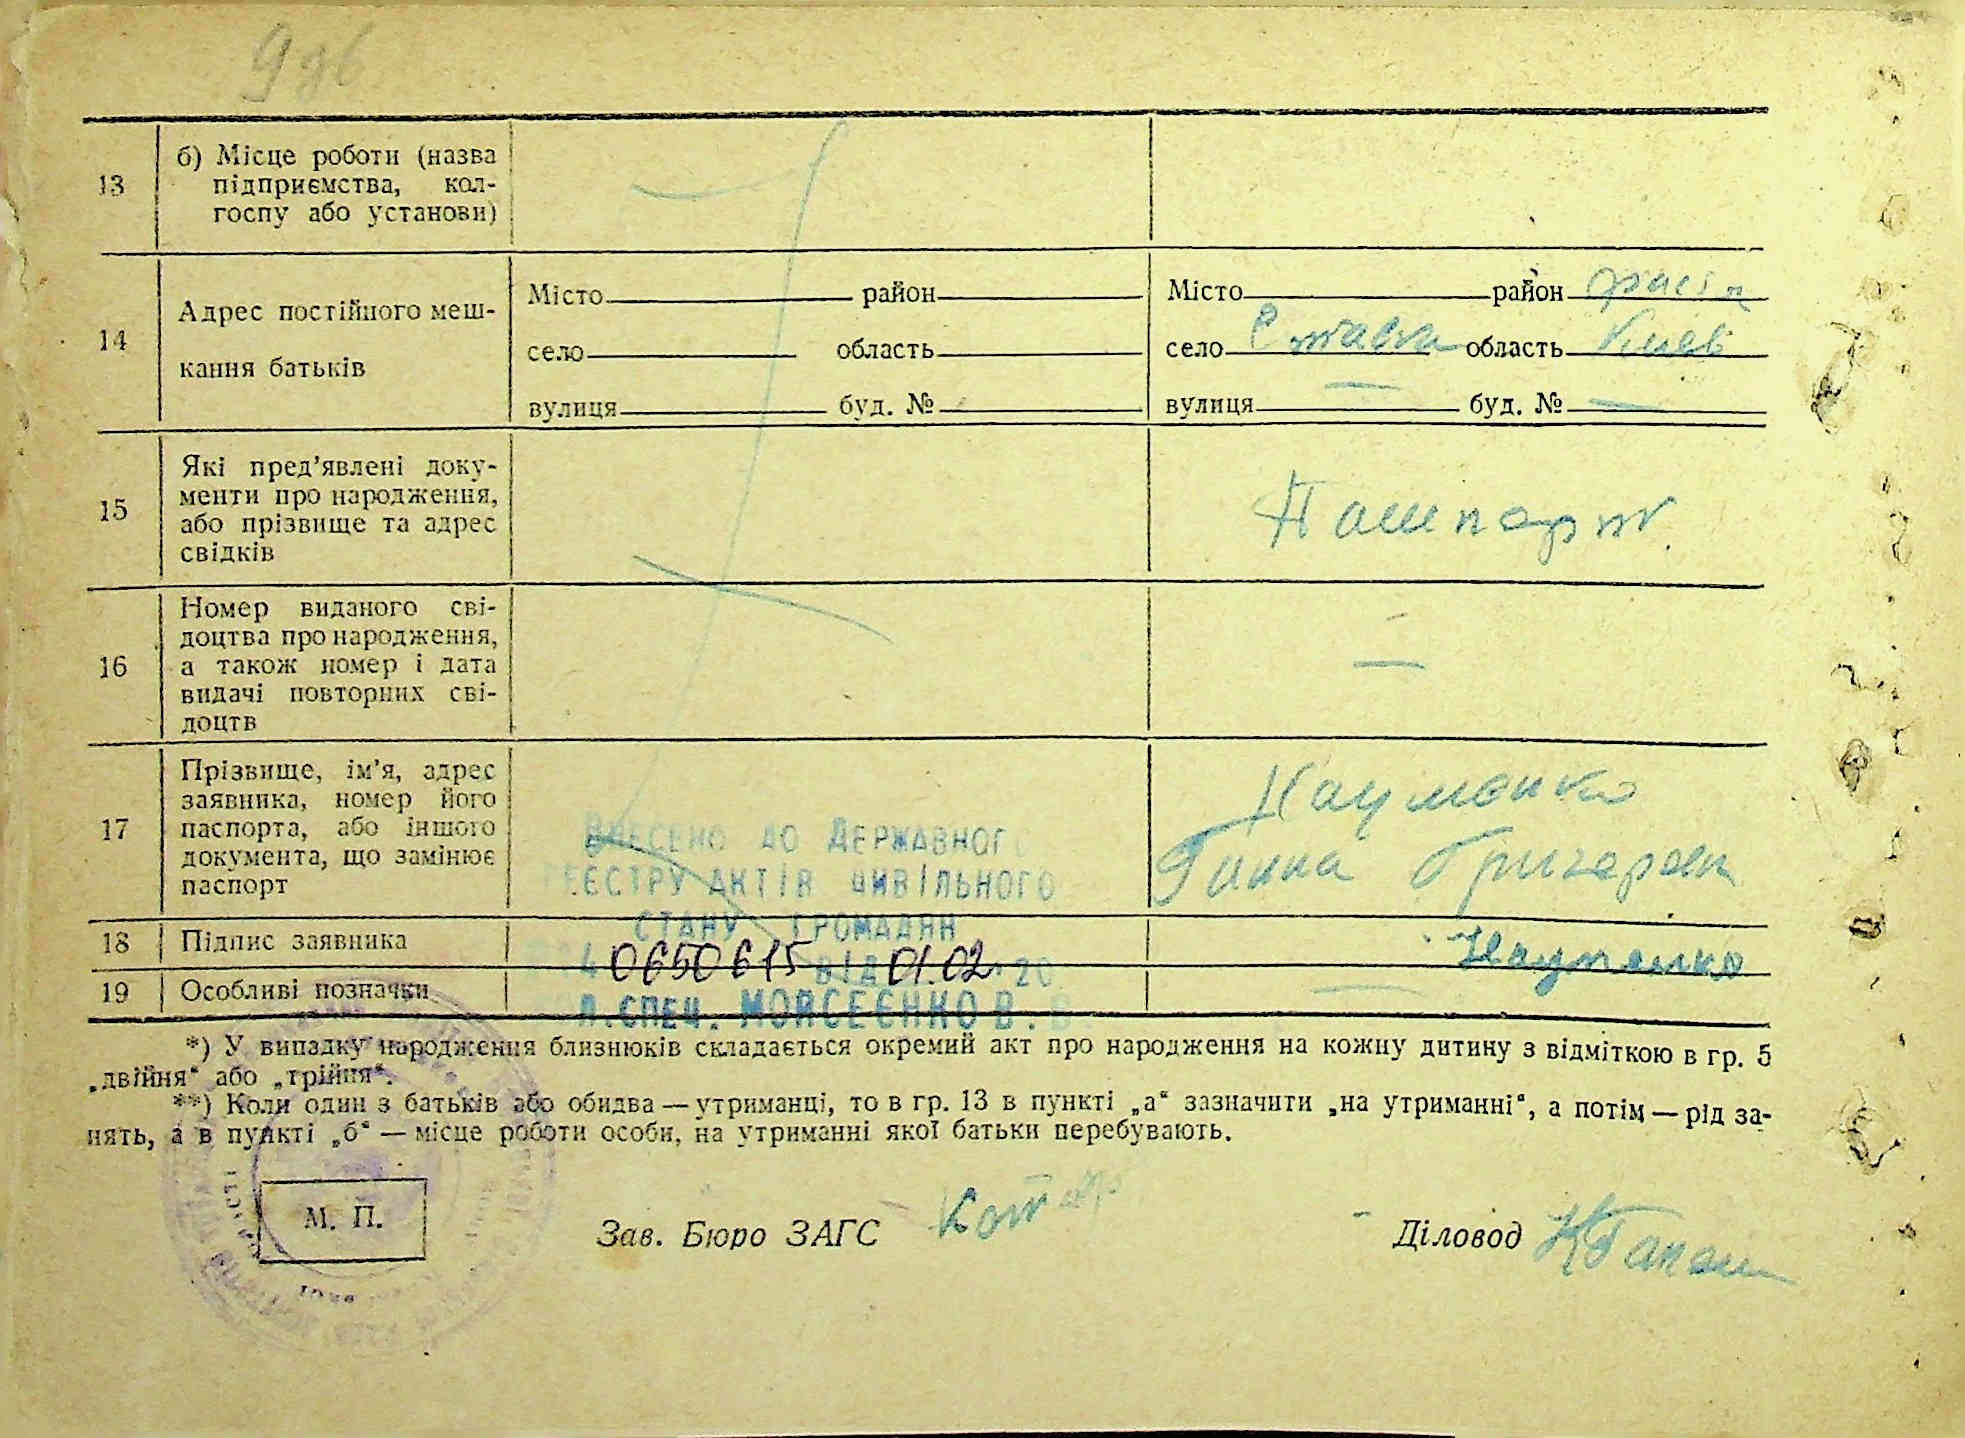 13
б) Місце роботи (назва
підприємства, кол-
госпу або установи)
14
Адрес постійного меш-
кання батьків
Місто район
село область
вулиця буд. №
Місто район
село Ставки область Київ
вулиця — буд. № —
15
Які пред’явлені доку-
менти про народження,
або прізвище та адрес
свідків
Пашпорт
16
Номер виданого сві-
доцтва про народження,
а також номер і дата
видачі повторних сві-
доцтв
—
17
Прізвище, ім’я, адрес
заявника, номер його
паспорта, або іншого
документа, що замінює
паспорт
Науменко
Ганна Григоров
ВНЕСЕНО ДО ДЕРЖАВНОГО
РЕЄСТРУ АКТІВ ЦИВІЛЬНОГО
СТАНУ ГРОМАДЯН
0650615 ВІД 01.02. 20
СПЕЦ. МОЙСЕЄНКО В. В
18
Підпис заявника
Науменко
19
Особливі позначки
*) У випадку народження близнюків складається окремий акт про народження на кожну дитину з відміткою в гр. 5
„двійня“ або „трійня“.
**) Коли один з батьків або обидва — утриманці, то в гр. 13 в пункті „а“ зазначити „на утриманні“, а потім — рід за-
нять, а в пункті „б“ — місце роботи особи, на утриманні якої батьки перебувають.
М. П.
Зав. Бюро ЗАГС
Діловод